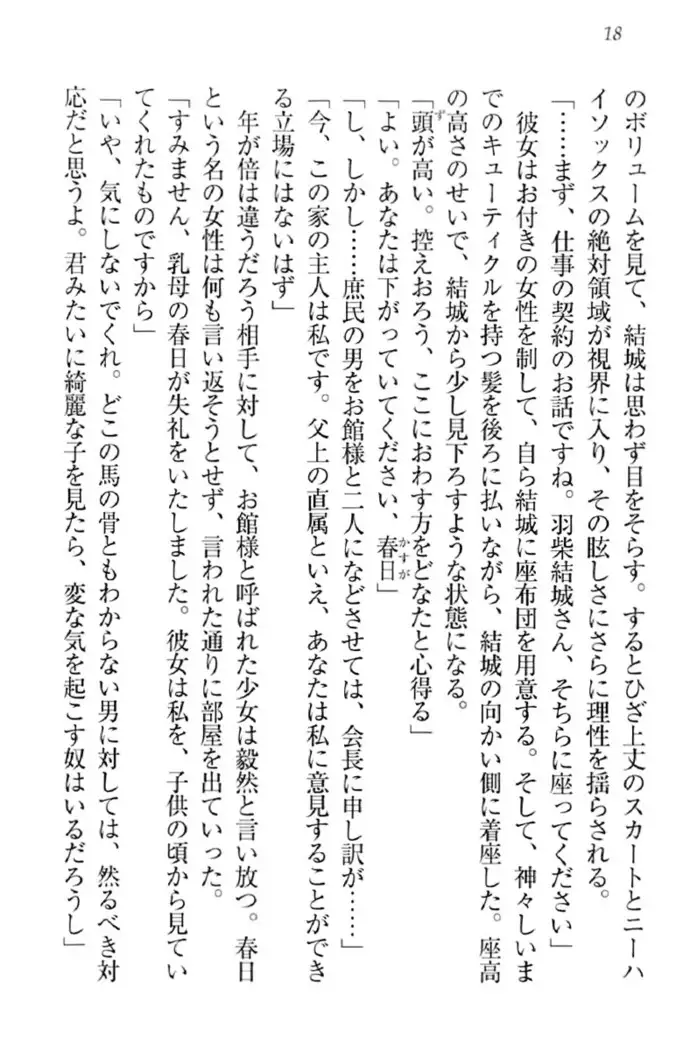 18
のボリュームを見て、結城は思わず目をそらす。するとひざ上丈のスカートとニーハ
イソックスの絶対領域が視界に入り、その眩しさにさらに理性を揺らされる。
「……まず、仕事の契約のお話ですね。羽柴結城さん、そちらに座ってください」
　彼女はお付きの女性を制して、自ら結城に座布団を用意する。そして、神々しいま
でのキューティクルを持つ髪を後ろに払いながら、結城の向かい側に着座した。座高
の高さのせいで、結城から少し見下ろすような状態になる。
「頭が高い。控えおろう、ここにおわす方をどなたと心得る」
「よい。あなたは下がっていてください、春日」
「し、しかし……庶民の男をお館様と二人になどさせては、会長に申し訳が……」
「今、この家の主人は私です。父上の直属といえ、あなたは私に意見することができ
る立場にはないはず」
　年が倍は違うだろう相手に対して、お館様と呼ばれた少女は毅然と言い放つ。春日
という名の女性は何も言い返そうとせず、言われた通りに部屋を出ていった。
「すみません、乳母の春日が失礼をいたしました。彼女は私を、子供の頃から見てい
てくれたものですから」
「いや、気にしないでくれ。どこの馬の骨ともわからない男に対しては、然るべき対
応だと思うよ。君みたいに綺麗な子を見たら、変な気を起こす奴はいるだろうし」